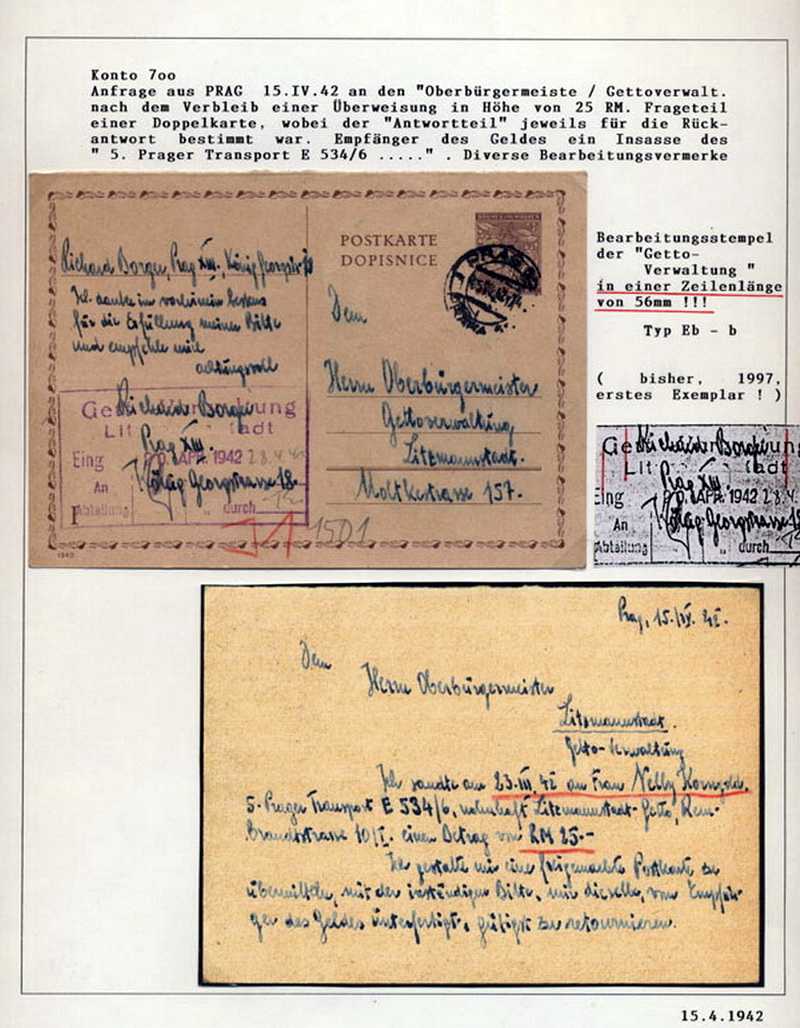 Konto 7oo
Anfrage aus PRAG 15.IV.42 an den "Oberbürgermeiste / Gettoverwalt.
nach dem Verbleib einer Überweisung in Höhe von 25 RM. Frageteil
einer Doppelkarte, wobei der "Antwortteil" jeweils für die Rück-
antwort bestimmt war. Empfänger des Geldes ein Insasse des
" 5. Prager Transport E 534/6 ....." . Diverse Bearbeitungsvermerke
Richard Borger, Prag XIII., König Georgstr. 18
Ich danke im vorhinein bestens
für die Erfüllung meiner Bitte
und empfehle mich
achtungsvoll
Richard Borger
Prag XIII.
König Georgstrasse 18.
Eing 20. APR. 1942 28.4.42
An
Abteilung durch
I
1501
1942
POSTKARTE
DOPISNICE
PRAG
Dem
Herrn Oberbürgermeister
Gettoverwaltung
Litzmannstadt.
Moltkestrasse 157.
Bearbeitungsstempel
der "Getto-
Verwaltung "
in einer Zeilenlänge
von 56mm !!!
Typ Eb - b
( bisher, 1997,
erstes Exemplar ! )
Richard Borger
Prag XIII.
König Georgstrasse 18
Eing 20. APR. 1942 28.4.
An
Abteilung durch
Prag, 15./IV. 42.
Dem
Herrn Oberbürgermeister
Litzmannstadt.
Getto-Verwaltung
Ich sandte am 23.III.42 an Frau Nelly Korngold.
5. Prager Transport E 534/6, wohnhaft Litzmannstadt-Getto, Rem-
brandtstrasse 10/I. einen Betrag von RM 25.-
Ich gestatte mir eine freigemachte Postkarte zu
übermitteln, mit der Bitte, mir dieselbe, vom Empfän-
ger des Geldes unterfertigt, gütigst zu retournieren.
15.4.1942